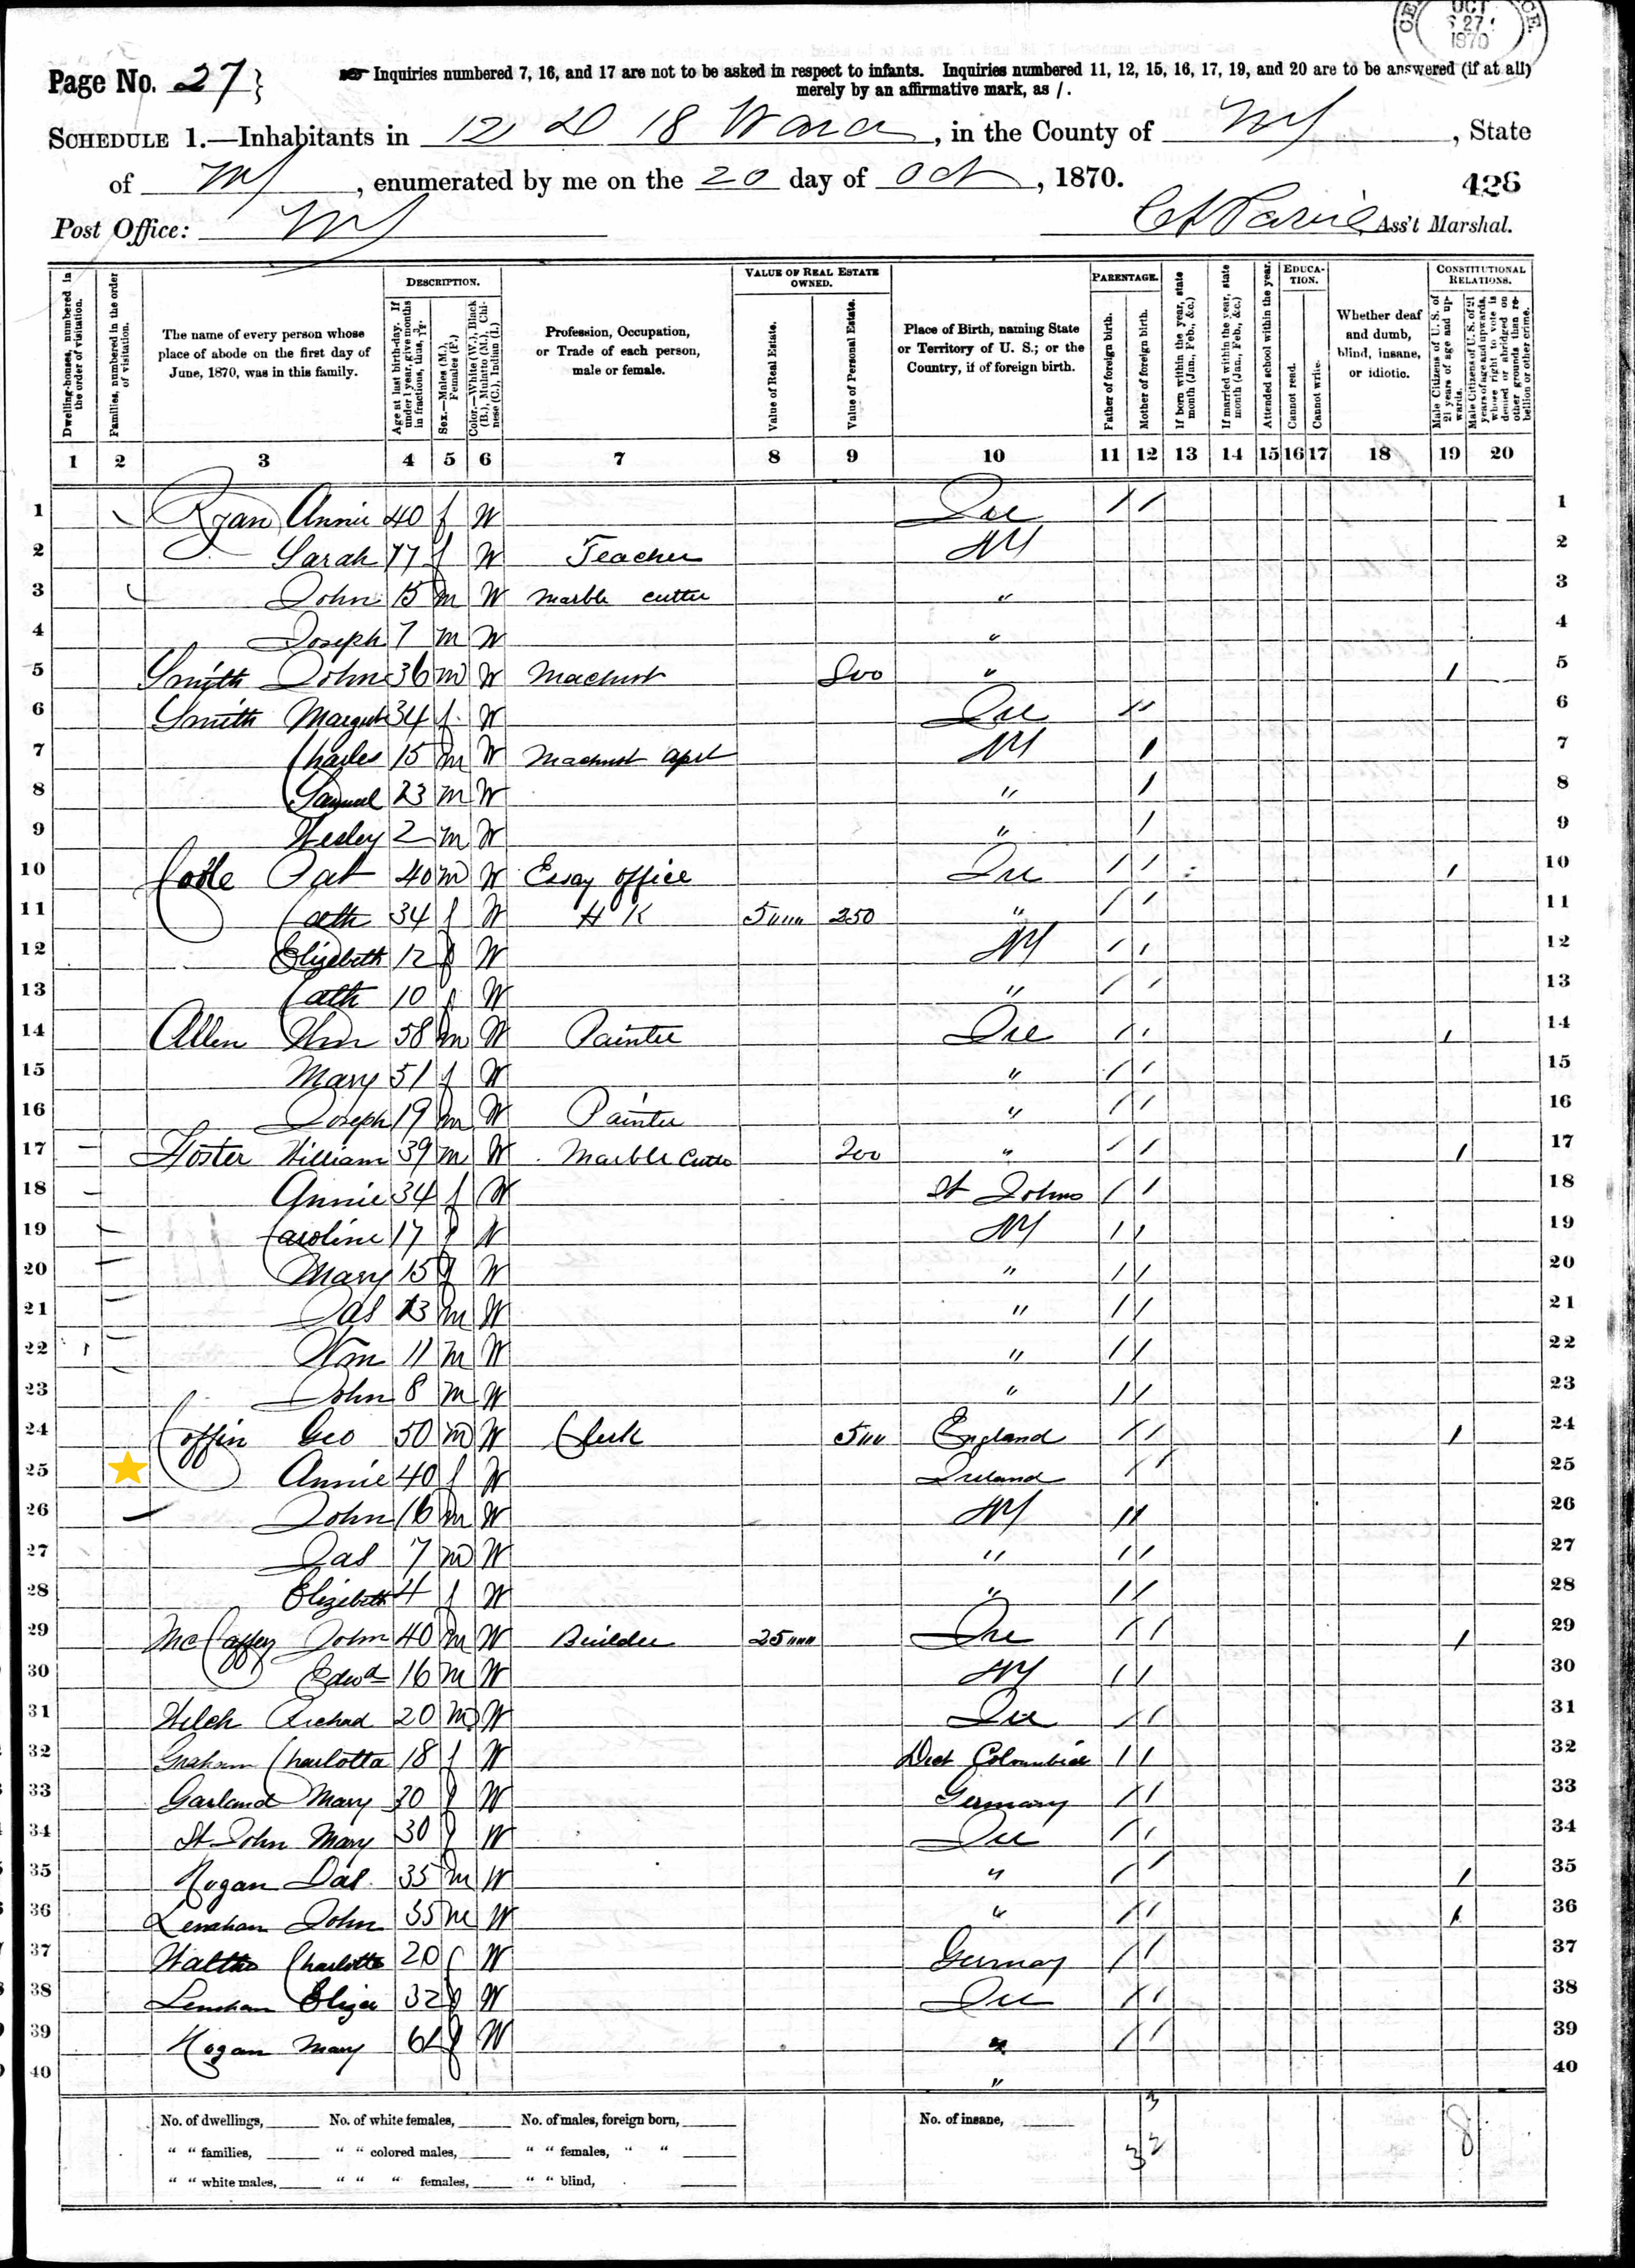 OCT 27 1870
Page No. 27 Inquiries numbered 7, 16, and 17 are not to be asked in respect to infants. Inquiries numbered 11, 12, 15, 16, 17, 19, and 20 are to be answered (if at all)
merely by an affirmative mark, as /.
SCHEDULE 1.—Inhabitants in 12 D 18 Ward, in the County of NY, State
of NY, enumerated by me on the 20 day of Oct, 1870.
428
Post Office: NY Ass't Marshal.
Dwelling-houses, numbered in the order of visitation.
Families, numbered in the order of visitation.
The name of every person whose place of abode on the first day of June, 1870, was in this family.
DESCRIPTION.
Age at last birth-day. If under 1 year, give months in fractions, thus,
Sex.—Males (M.), Females (F.)
Color.—White (W.), Black (B.), Mulatto (M.), Chinese (C.), Indian (I.)
Profession, Occupation, or Trade of each person, male or female.
VALUE OF REAL ESTATE OWNED.
Value of Real Estate.
Value of Personal Estate.
Place of Birth, naming State or Territory of U. S.; or the Country, if of foreign birth.
PARENTAGE.
Father of foreign birth.
Mother of foreign birth.
If born within the year, state month (Jan., Feb., &c.)
If married within the year, state month (Jan., Feb., &c.)
Attended school within the year.
EDUCATION.
Cannot read.
Cannot write.
Whether deaf and dumb, blind, insane, or idiotic.
CONSTITUTIONAL RELATIONS.
Male Citizens of U. S. of 21 years of age and upwards.
Male Citizens of U. S. of 21 years of age and upwards, whose right to vote is denied or abridged on other grounds than rebellion or other crime.
1 2 3 4 5 6 7 8 9 10 11 12 13 14 15 16 17 18 19 20
1 Ryan Annie 40 f W Ire / / 1
2 Sarah 17 f W Teacher NY 2
3 John 15 m W Marble cutter " 3
4 Joseph 7 m W " 4
5 Smith John 36 m W Machinst 800 " / 5
6 Smith Margret 34 f W Ire / / 6
7 Charles 15 m W Machinst apt NY / 7
8 Samuel 23 m W " / 8
9 Wesley 2 m W " / 9
10 Pat 40 m W Essay office Ire / / / 10
11 Cath 34 f W H K 5000 250 " / / 11
12 Elizabeth 12 f W NY / / 12
13 Cath 10 f W " / / 13
14 Allen Wm 58 m W Painter Ire / / / 14
15 Mary 51 f W " / / 15
16 Joseph 19 m W Painter " / / 16
17 Foster William 39 m W Marble Cutter 200 " / / / 17
18 Annie 34 f W St Johns / / 18
19 Caroline 17 f W NY / / 19
20 Mary 15 f W " / / 20
21 Jas 13 m W " / / 21
22 Wm 11 m W " / / 22
23 John 8 m W " / / 23
24 Coffin Geo 50 m W Clerk 500 England / / / 24
25 Annie 40 f W Ireland / / 25
26 John 16 m W NY / / 26
27 Jas 7 m W " / / 27
28 Elizabeth 4 f W " / / 28
29 McCaffey John 40 m W Builder 25000 Ire / / / 29
30 Edwd 16 m W NY / / 30
31 Welch Richad 20 m W Ire / / 31
32 Graham Charlotta 18 f W Dict Coloumbia / / 32
33 Garland Mary 20 f W Germany / / 33
34 St John Mary 30 f W Ire / / 34
35 Hogan Jas 35 m W " / / / 35
36 Lenahan John 35 m W " / / / 36
37 Charlotte 20 f W Germay / / 37
38 Lenahan Eliza 32 f W Ire / / 38
39 Hogan Mary f W " / / 39
40 " 40
No. of dwellings, No. of white females, No. of males, foreign born, No. of insane,
" " families, " " colored males, " " females, " "
" " white males, " " " females, " " blind,
3
32
8